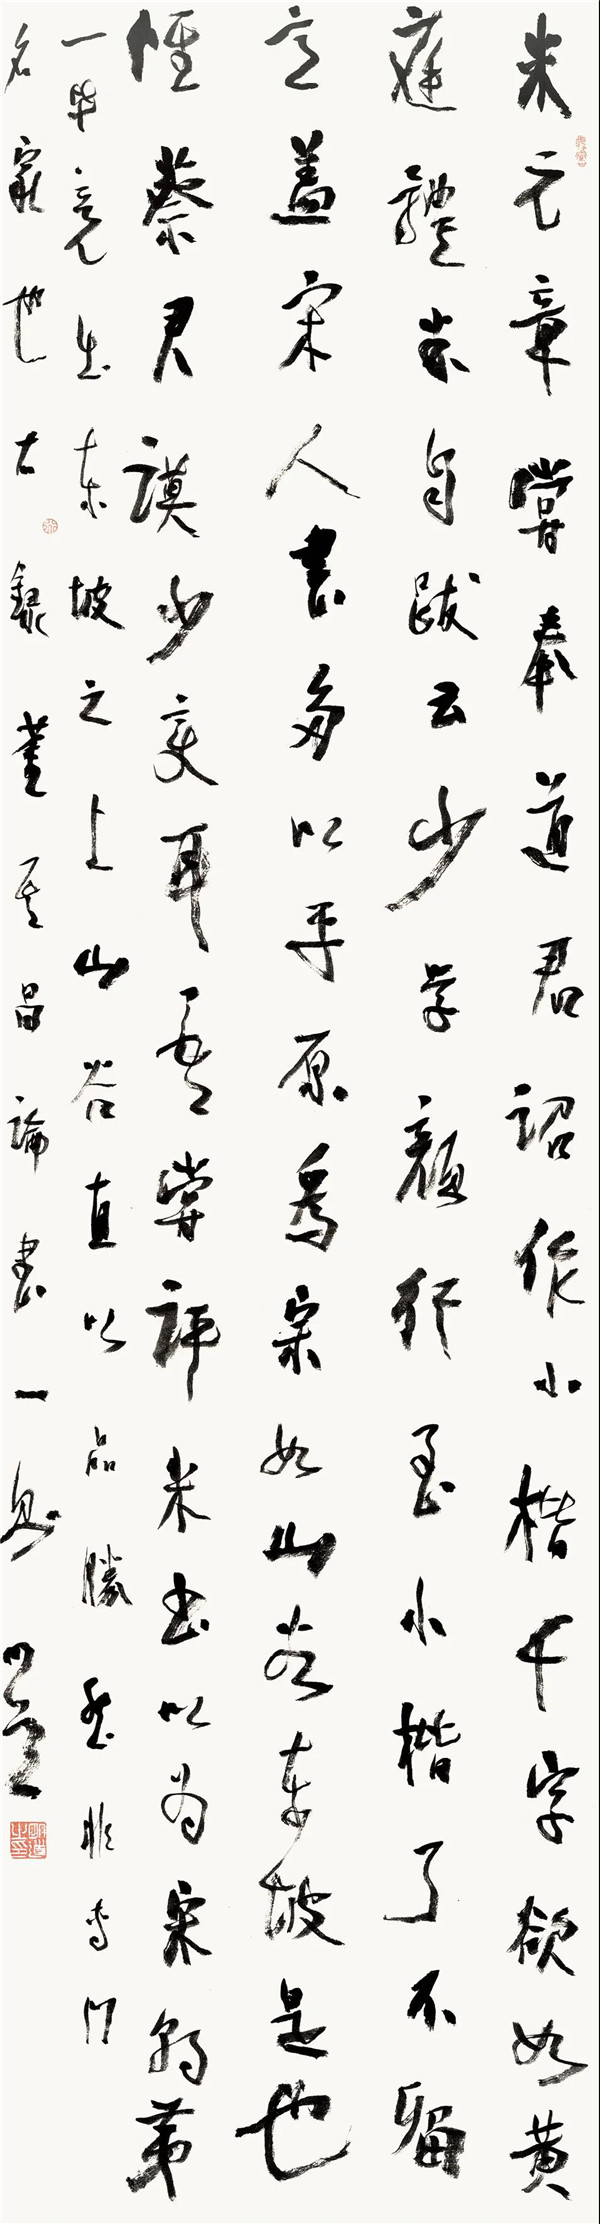 米元章嘗奉道君詔作小楷千字欲如黄
庭體米自跋云少学顔行至小楷了不留
意蓋宋人書多以平原爲宗如山谷東坡是也
惟蔡君謨少变耳吾嘗評米書以为宋朝第
一畢竟出東坡之上山谷直以品勝然非專門
名家也右録董其昌論書一則